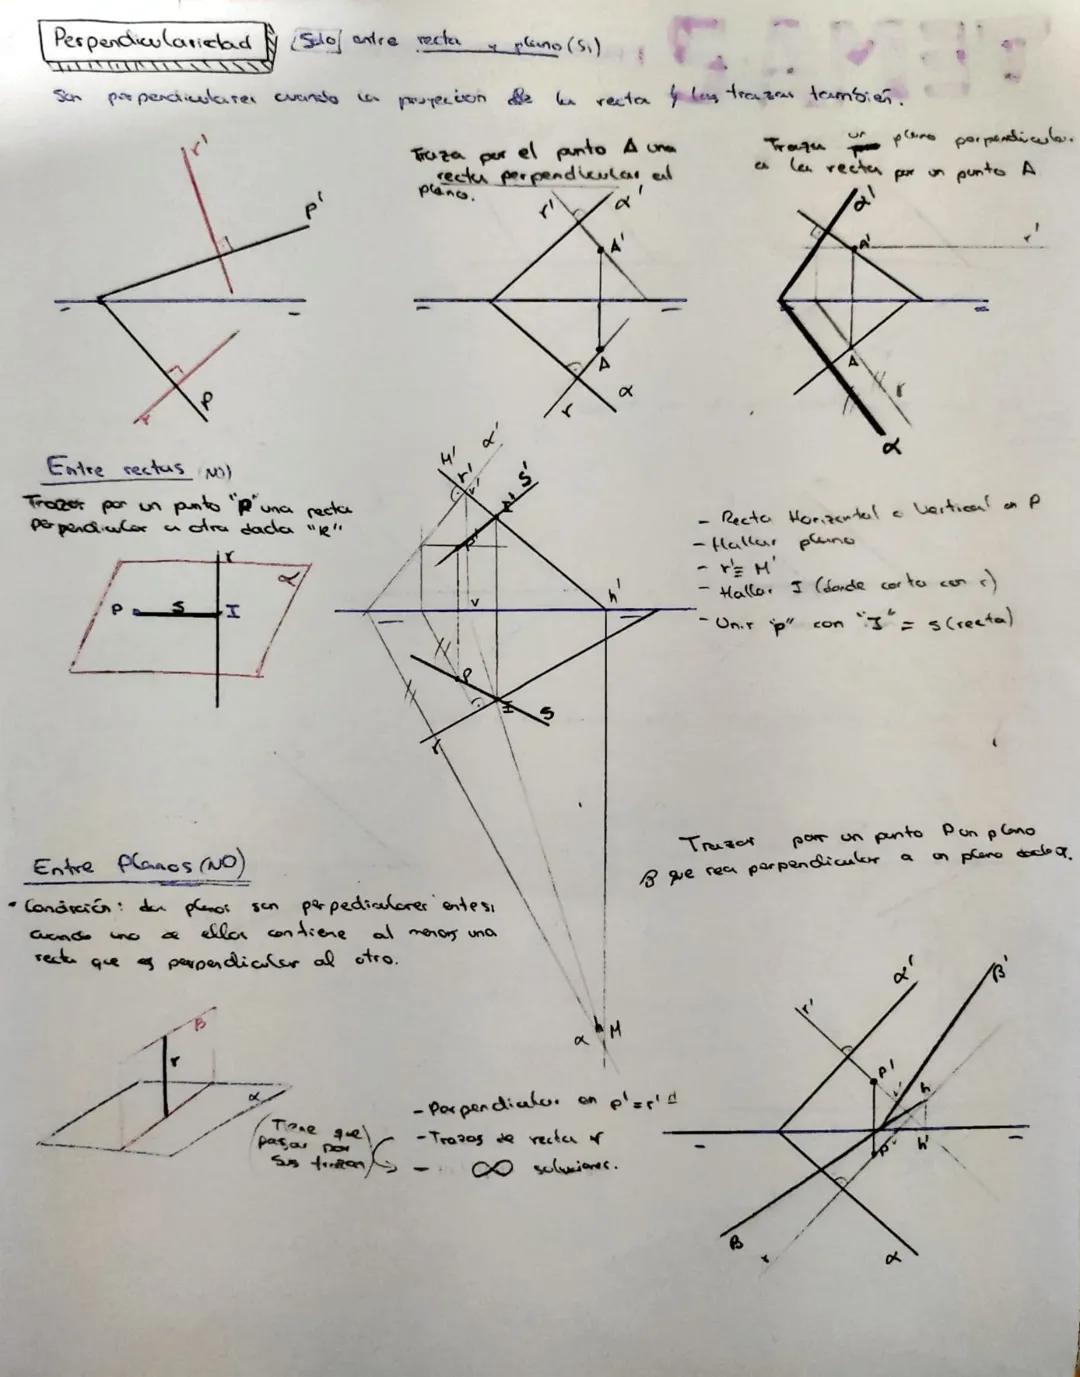 Perpendicularidad (Solo) entre recta y plano (Si)
Son perpendiculares cuando la proyección de la recta y las trazas también.
Traza por el punto A una
recta perpendicular al
plano.
Traza un plano perpendicular
a la recta por un punto A
r'
p'
r
p
r'
α'
A'
A
r
α
α'
A'
r'
A
r
α
Entre rectas (NO)
Trazar por un punto "P" una recta
perpendicular a otra dada "R"
r
α
P
S
I
M'
r'
α'
v'
S'
I'
P'
v
h'
P
I
S
r
α
h
M
- Recta Horizontal o Vertical en P
- Hallar plano
- r'≡ M'
- Hallar I (donde corta con r)
- Unir "p" con "I" = s (recta)
Entre Planos (NO)
• Condición: dos planos son perpediculares entesi
cuando uno de ellos contiene al menos una
recta que es perpendicular al otro.
B
r
α
(Tiene que
pasar por
sus trazas)
- Perpendicular en p'=r'
- Trazas de recta r
- ∞ soluciones.
Trazar por un punto P un plano
B que sea perpendicular a un plano dado α.
α'
B'
r'
P'
v'
h
P
h'
B
r
α